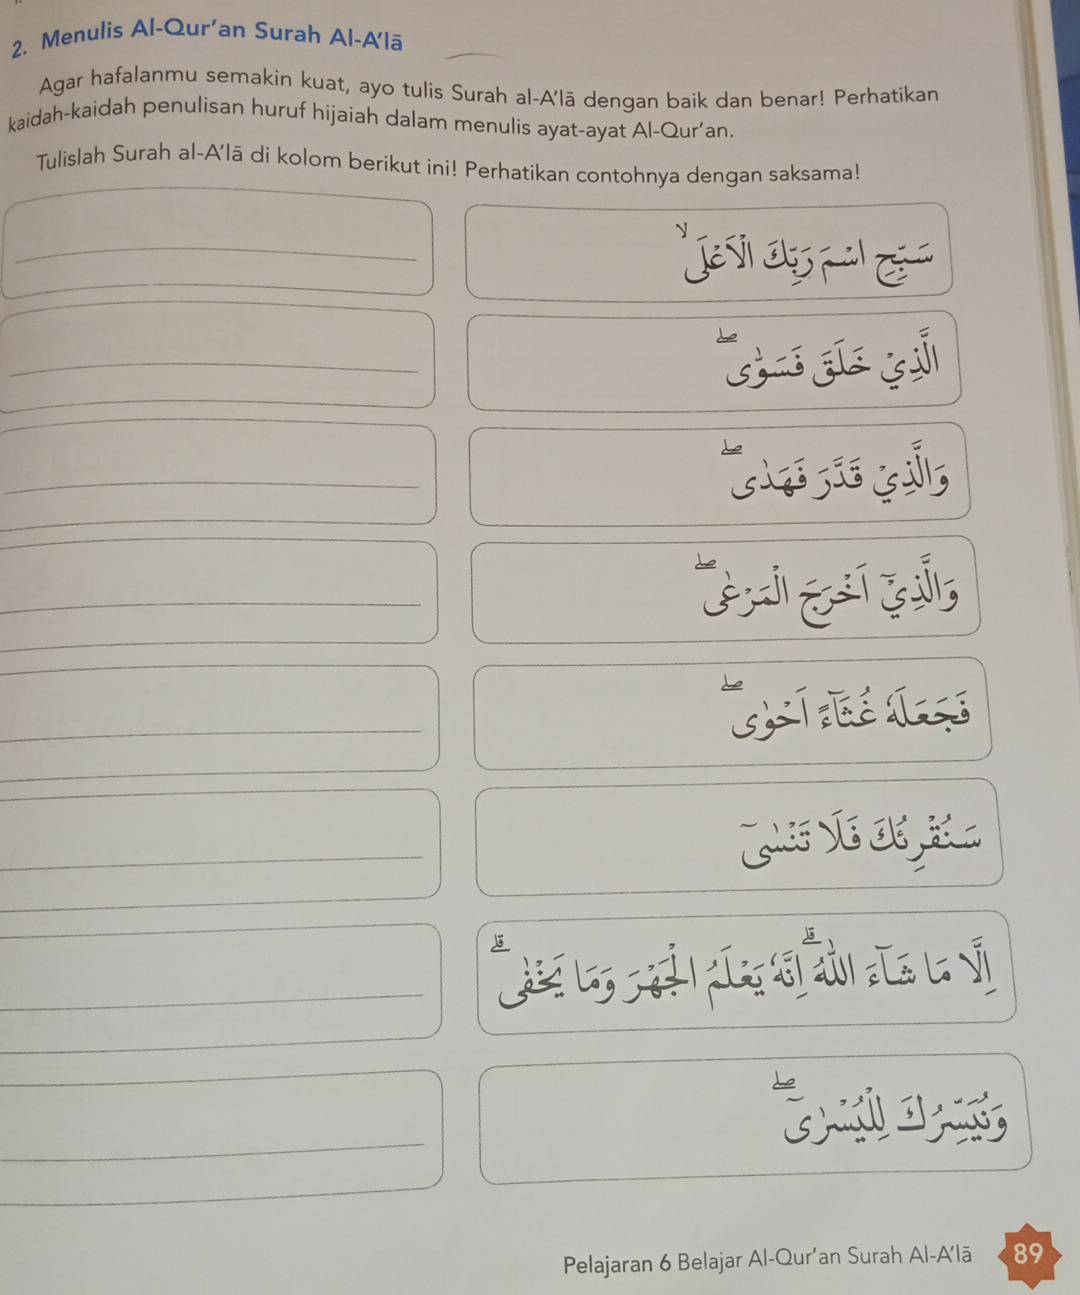 2. Menulis Al-Qur'an Surah Al-A'lā
Agar hafalanmu semakin kuat, ayo tulis Surah al-A'lā dengan baik dan benar! Perhatikan
kaidah-kaidah penulisan huruf hijaiah dalam menulis ayat-ayat Al-Qur'an.
Tulislah Surah al-A'lā di kolom berikut ini! Perhatikan contohnya dengan saksama!
سَبِّحِ اسْمَ رَبِّكَ الْاَعْلَىۙ
الَّذِيْ خَلَقَ فَسَوّٰىۖ
وَالَّذِيْ قَدَّرَ فَهَدٰىۖ
وَالَّذِيْٓ اَخْرَجَ الْمَرْعٰىۖ
فَجَعَلَهٗ غُثَاۤءً اَحْوٰىۖ
سَنُقْرِئُكَ فَلَا تَنْسٰىٓ
اِلَّا مَا شَاۤءَ اللّٰهُۗ اِنَّهٗ يَعْلَمُ الْجَهْرَ وَمَا يَخْفٰىۗ
وَنُيَسِّرُكَ لِلْيُسْرٰىۖ
Pelajaran 6 Belajar Al-Qur'an Surah Al-A'lā 89